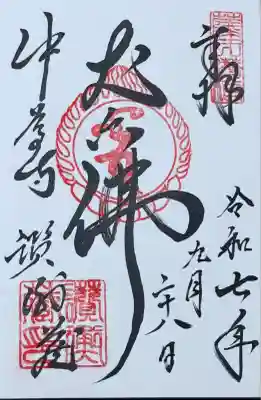 奉拝
令和七年
九月二十八日
丈六佛
中尊寺
讃衡蔵